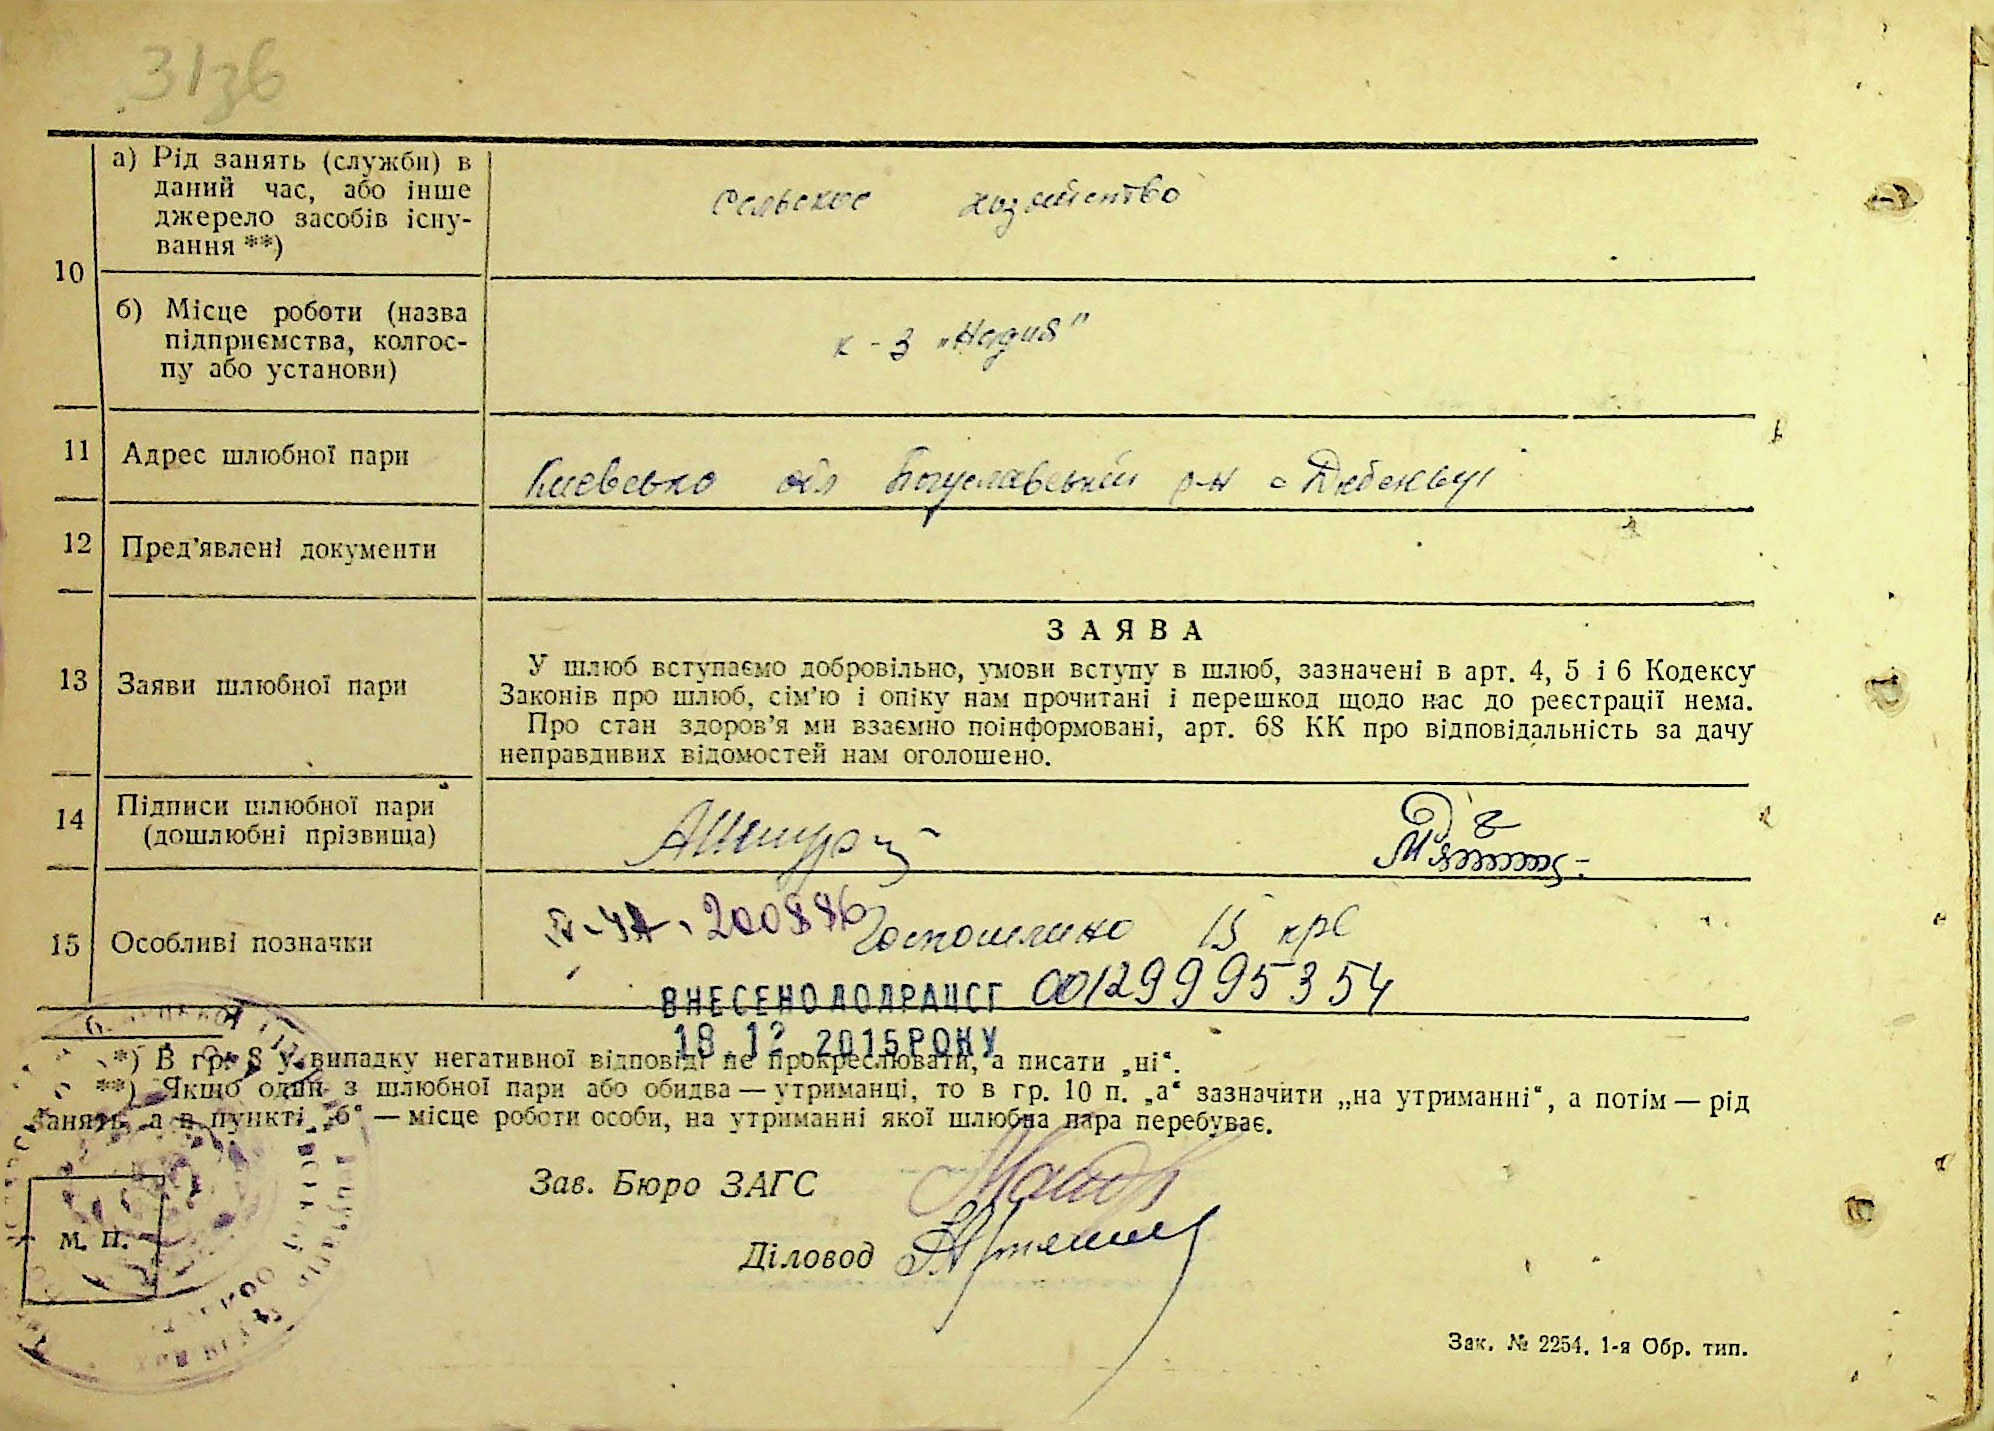 31зв
а) Рід занять (служби) в
даний час, або інше
джерело засобів існу-
вання **)
Сельское хозяйство
10
б) Місце роботи (назва
підприємства, колгос-
пу або установи)
к-з „Надия"
11 Адрес шлюбної пари
Киевсько обл Богуславський р-н с Дибенці
12 Пред'явлені документи
ЗАЯВА
13 Заяви шлюбної пари
У шлюб вступаємо добровільно, умови вступу в шлюб, зазначені в арт. 4, 5 і 6 Кодексу
Законів про шлюб, сім'ю і опіку нам прочитані і перешкод щодо нас до реєстрації нема.
Про стан здоров'я ми взаємно поінформовані, арт. 68 КК про відповідальність за дачу
неправдивих відомостей нам оголошено.
14 Підписи шлюбної пари
(дошлюбні прізвища)
15 Особливі позначки
IV-УА. 200886 Госпошлино 15 крб
ВНЕСЕНО ДО ДРАЦСГ 00129995354
18.12.2015 РОКУ
*) В гр. 8 у випадку негативної відповіді не прокреслювати, а писати „ні“.
**) Якщо один з шлюбної пари або обидва — утриманці, то в гр. 10 п. „а“ зазначити „на утриманні“, а потім — рід
занять, а в пункті „б“ — місце роботи особи, на утриманні якої шлюбна пара перебуває.
Зав. Бюро ЗАГС
М. П.
Діловод
Зак. № 2254. 1-я Обр. тип.